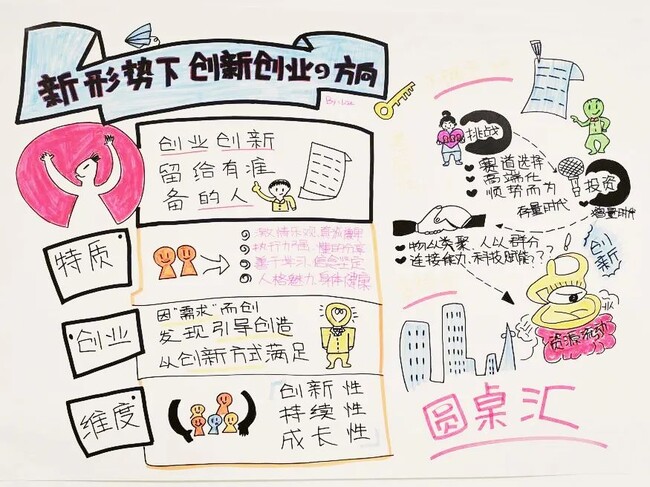 新形势下创新创业の方向
By:Lisa
创业创新
留给有准
备的人
特质
激情乐观真诚
执行力强 懂得分享
善于学习 信念坚定
人格魅力 身体健康
创业
因"需求"而创
发现引导创造
从创新方式满足
维度
创新性
持续性
成长性
挑战
赛道选择
高端化
顺势而为
投资
存量时代
增量时代
物以类聚,人以群分
连接能力,科技赋能??
创新
资源流动
圆桌汇